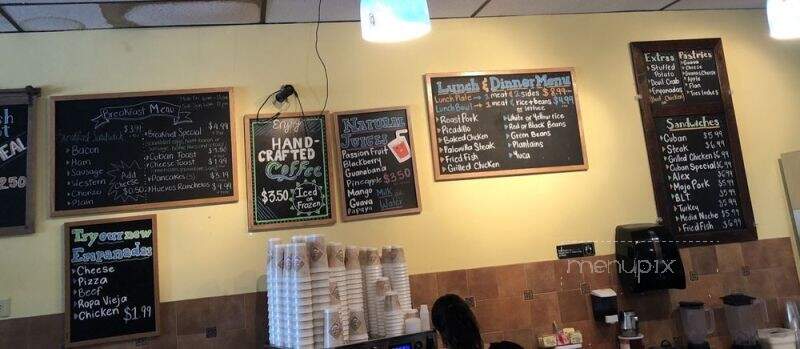 EAL
2.50
Breakfast Menu
Breakfast Sandwich $3.99
Bacon
Ham
Sausage
Western
Chorizo
Plain
Add Cheese $0.50
Breakfast Special $4.99
Cuban Toast $1.50
Cheese Toast $1.99
Pancakes (3) $5.19
Huevos Rancheros $4.99
Try our new
Empanadas
Cheese
Pizza
Beef
Ropa Vieja
Chicken $1.99
Enjoy
HAND-
CRAFTED
Coffee
$3.50 Iced or Frozen
Natural
Juices
Passion Fruit
Blackberry
Guanabana
Pineapple $3.50
Mango Milk or
Guava Water
Papaya
Lunch & Dinner Menu
Lunch Plate → 1 meat 2 sides $8.99
Lunch Bowl → 1 meat & rice + beans $4.99
or lettuce
Roast Pork
Picadillo
Baked Chicken
Palomilla Steak
Fried Fish
Grilled Chicken
White or Yellow rice
Red or Black Beans
Green Beans
Plantains
Yuca
Extras
Stuffed Potato
Devil Crab
Empanadas
(Beef, Chicken)
Pastries
Guava
Cheese
Guava & Cheese
Apple
Flan
Tres Leches
Sandwiches
Cuban $5.99
Steak $6.99
Grilled Chicken $6.99
Cuban Special $5.99
Alex $6.99
Mojo Pork $5.99
BLT $5.99
Turkey $5.99
Media Noche $5.99
Fried Fish $6.99
menupix